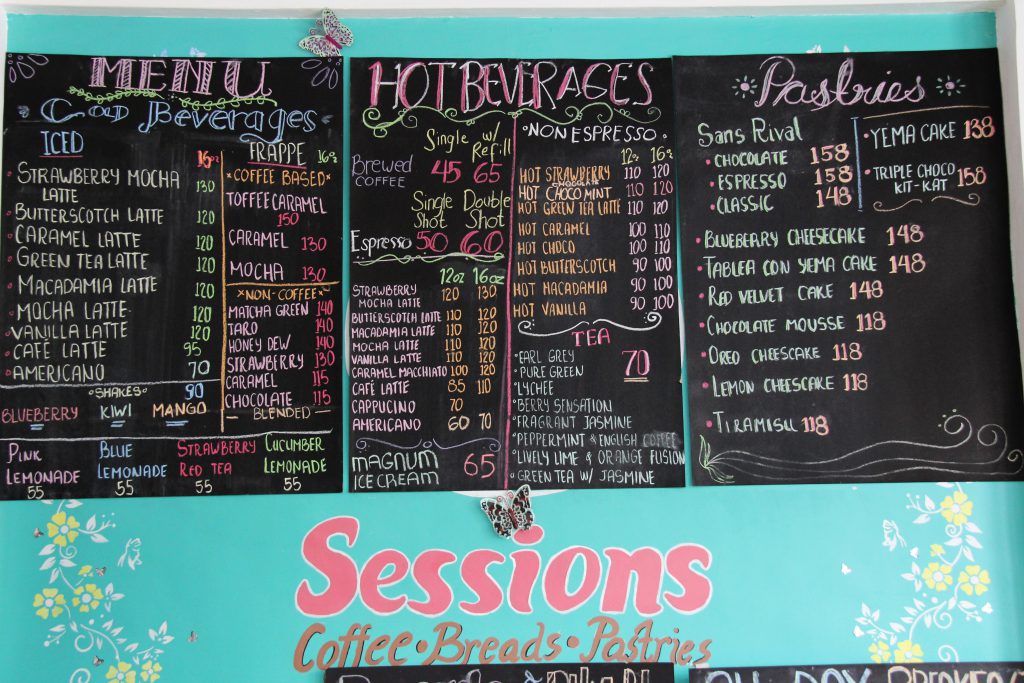 MENU
Cold Beverages
ICED
16oz
STRAWBERRY MOCHA LATTE 130
BUTTERSCOTCH LATTE 120
CARAMEL LATTE 120
GREEN TEA LATTE 120
MACADAMIA LATTE 120
MOCHA LATTE 120
VANILLA LATTE 120
CAFÉ LATTE 95
AMERICANO 70
°SHAKES° 90
BLUEBERRY KIWI MANGO
FRAPPE 16oz
*COFFEE BASED*
TOFFEE CARAMEL
150
CARAMEL 130
MOCHA 130
*NON-COFFEE*
MATCHA GREEN 140
TARO 140
HONEY DEW 140
STRAWBERRY 130
CARAMEL 115
CHOCOLATE 115
— BLENDED —
PINK LEMONADE 55
BLUE LEMONADE 55
STRAWBERRY RED TEA 55
CUCUMBER LEMONADE 55
HOT BEVERAGES
Single w/ Refill
Brewed COFFEE 45 65
Single Shot Double Shot
Espresso 50 60
12oz 16oz
STRAWBERRY MOCHA LATTE 120 130
BUTTERSCOTCH LATTE 110 120
MACADAMIA LATTE 110 120
MOCHA LATTE 110 120
VANILLA LATTE 110 120
CARAMEL MACCHIATO 100 120
CAFÉ LATTE 85 110
CAPPUCINO 70
AMERICANO 60 70
MAGNUM ICE CREAM 65
NON ESPRESSO
12oz 16oz
HOT STRAWBERRY CHOCOLATE 110 120
HOT CHOCO MINT 110 120
HOT GREEN TEA LATTE 110 120
HOT CARAMEL 100 110
HOT CHOCO 100 110
HOT BUTTERSCOTCH 90 100
HOT MACADAMIA 90 100
HOT VANILLA 90 100
TEA
70
°EARL GREY
°PURE GREEN
°LYCHEE
°BERRY SENSATION
°FRAGRANT JASMINE
°PEPPERMINT & ENGLISH COFFEE
°LIVELY LIME & ORANGE FUSION
°GREEN TEA W/ JASMINE
Pastries
Sans Rival
• CHOCOLATE 158
• ESPRESSO 158
• CLASSIC 148
• YEMA CAKE 138
• TRIPLE CHOCO KIT-KAT 158
• BLUEBERRY CHEESECAKE 148
• TABLEA CON YEMA CAKE 148
• RED VELVET CAKE 148
• CHOCOLATE MOUSSE 118
• OREO CHEESCAKE 118
• LEMON CHEESCAKE 118
• TIRAMISU 118
Sessions
Coffee • Breads • Pastries
ALL DAY BREAKFAST